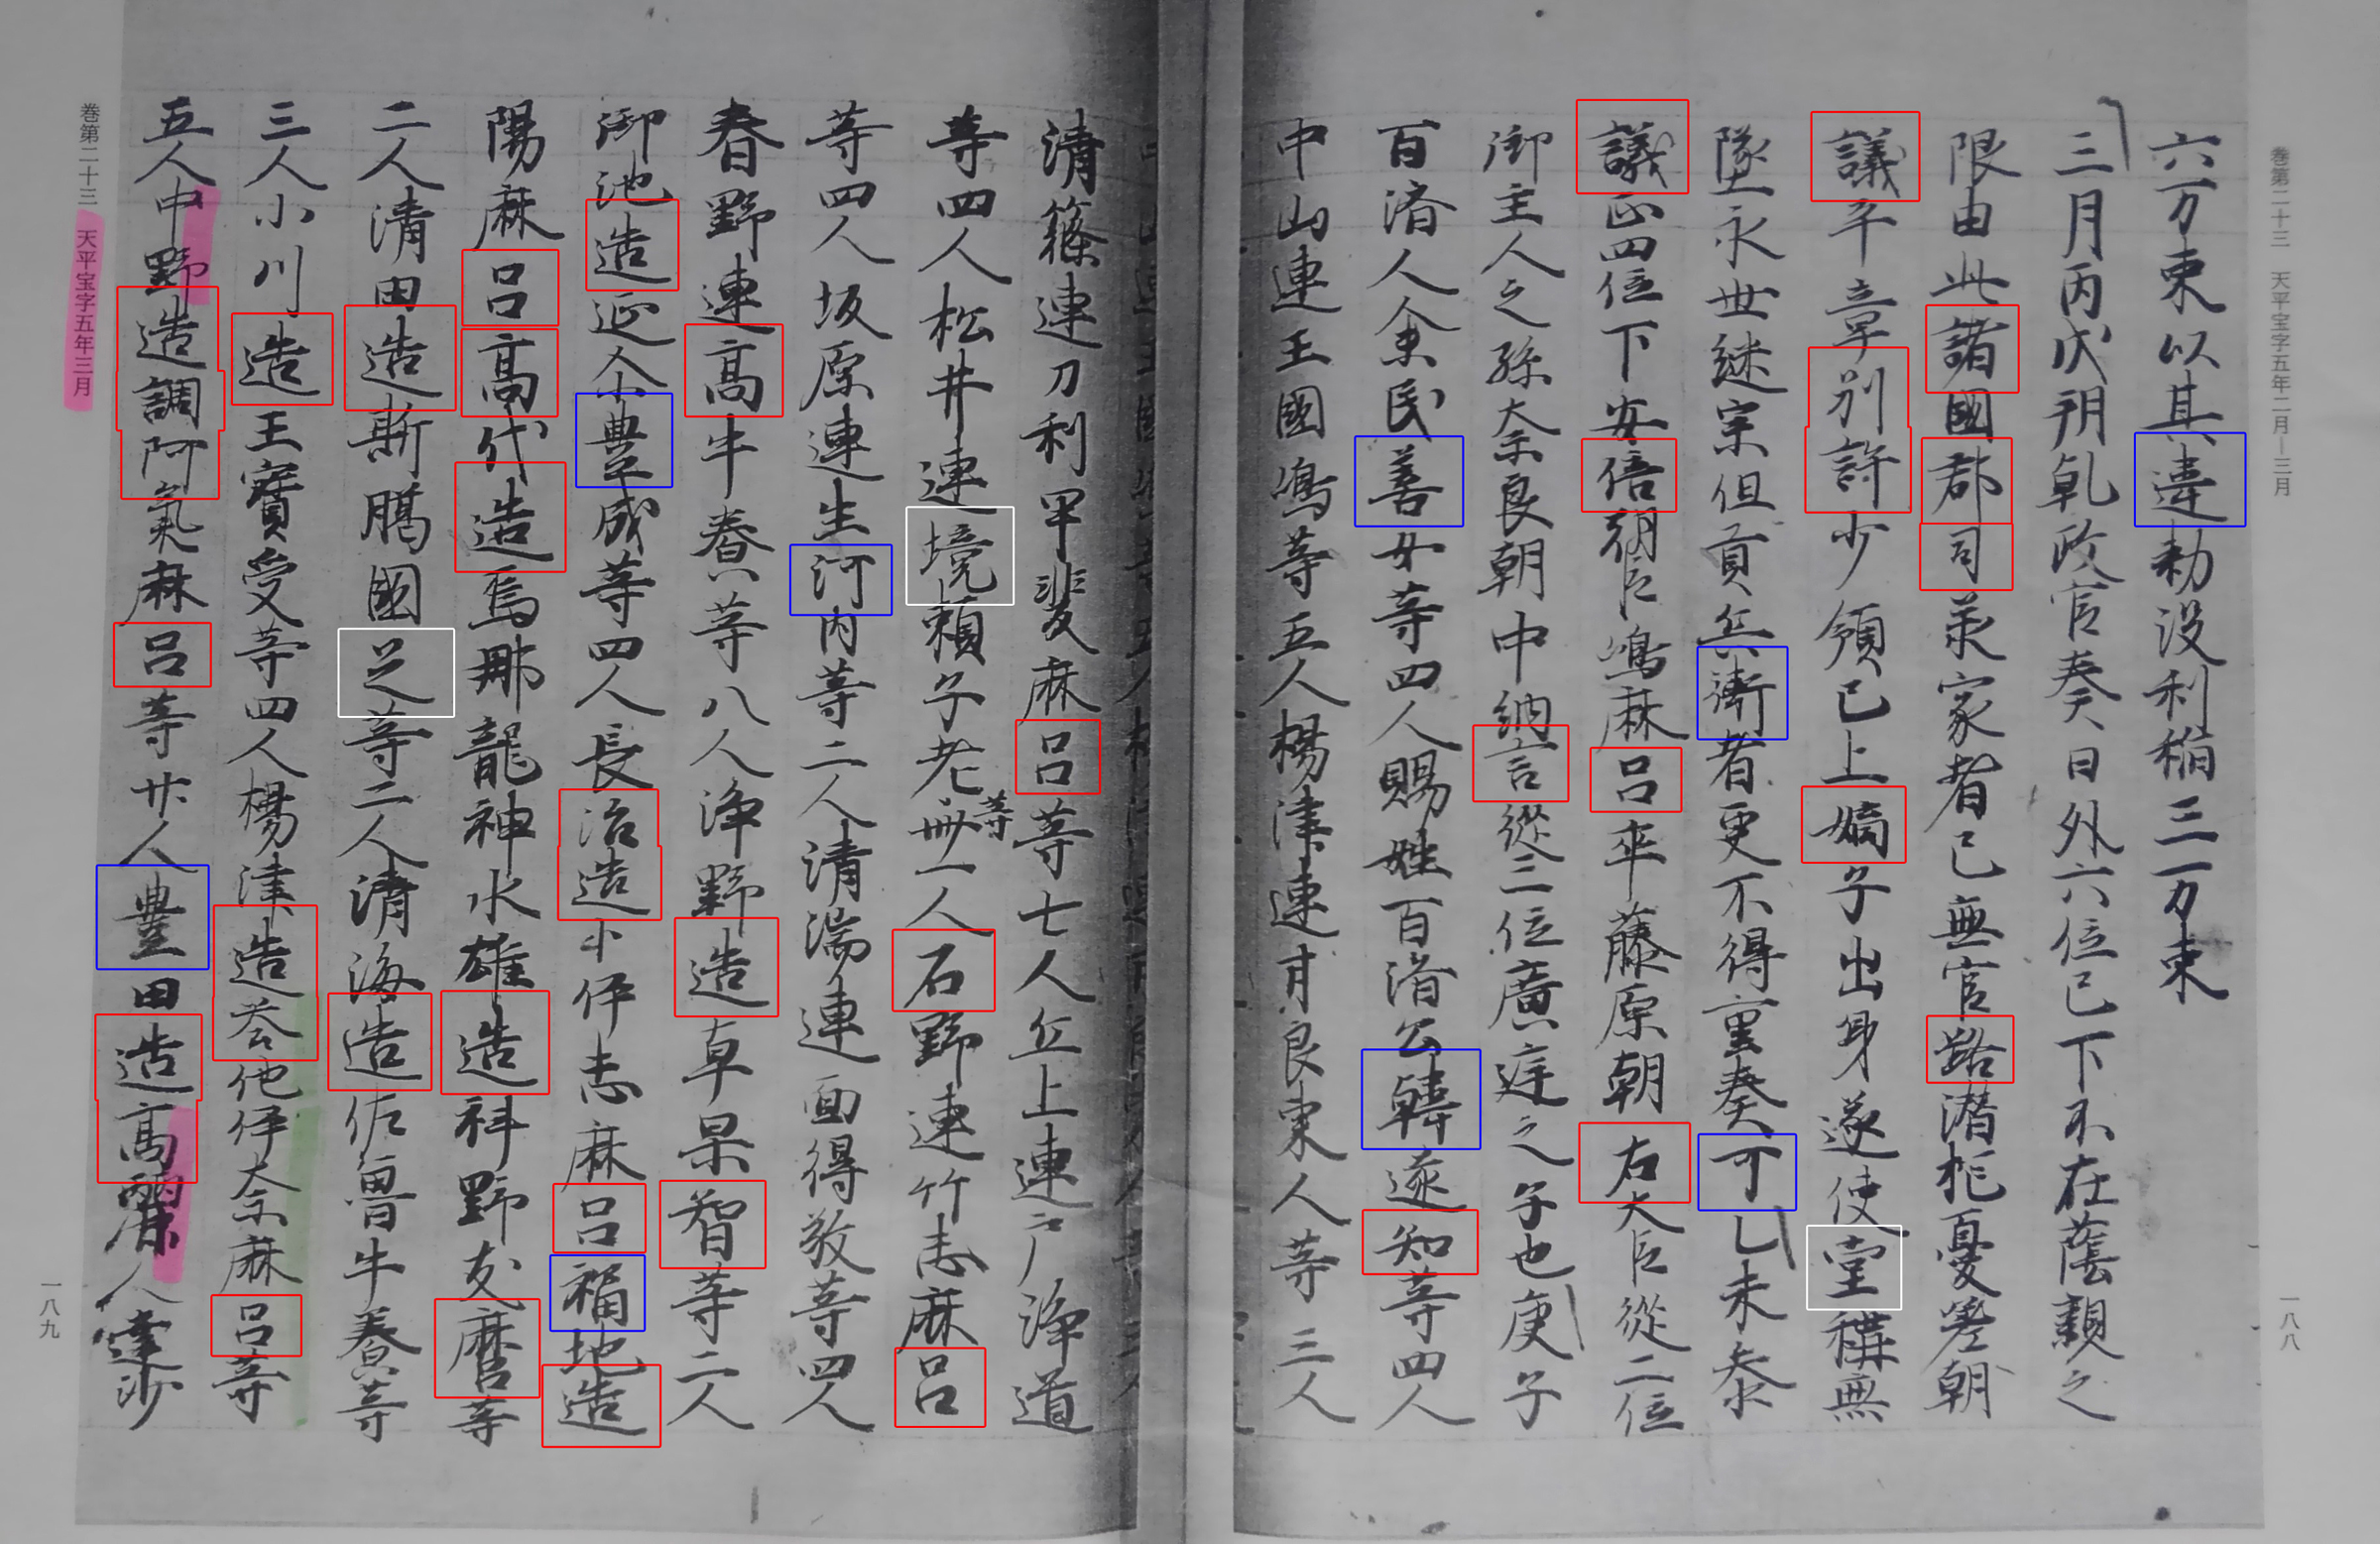 巻第二十三 天平宝字五年二月―三月
六万束以其違勅没利稲三万束
三月丙戌朔乹政官奏曰外六位已下不在蔭親之
限由此諸國郡司承家者已無官路潜抱憂嗟朝
議平章別許少領已上嫡子出身遂使堂構無
墜永世継宗但貢兵衛者更不得重奏可乙未参
議正四位下安倍朝臣嶋麻呂卒藤原朝右大臣從二位
御主人之孫奈良朝中納言從三位廣庭之子也庚子
百済人余民善女等四人賜姓百済公韓遠知等四人
中山連王國嶋等五人楊津連甘良東人等三人
清篠連刀利甲斐麻呂等七人丘上連戸浄道
等四人松井連境頼子老等卌一人石野連竹志麻呂
等四人坂原連生河内等二人清湍連面得敬等四人
春野連高牛養等八人浄野造卓杲智等二人
御池造延尒豊成等四人長沼造小伊志麻呂福地造
陽麻呂高代造烏那龍神水雄造科野友麿等
二人清田造斯臈國芝等二人清海造佐魯牛養等
三人小川造王寶受等四人楊津造荅他伊奈麻呂等
五人中野造調阿氣麻呂等廿人豊田造高麗人達沙
巻第二十三 天平宝字五年三月
一八八
一八九